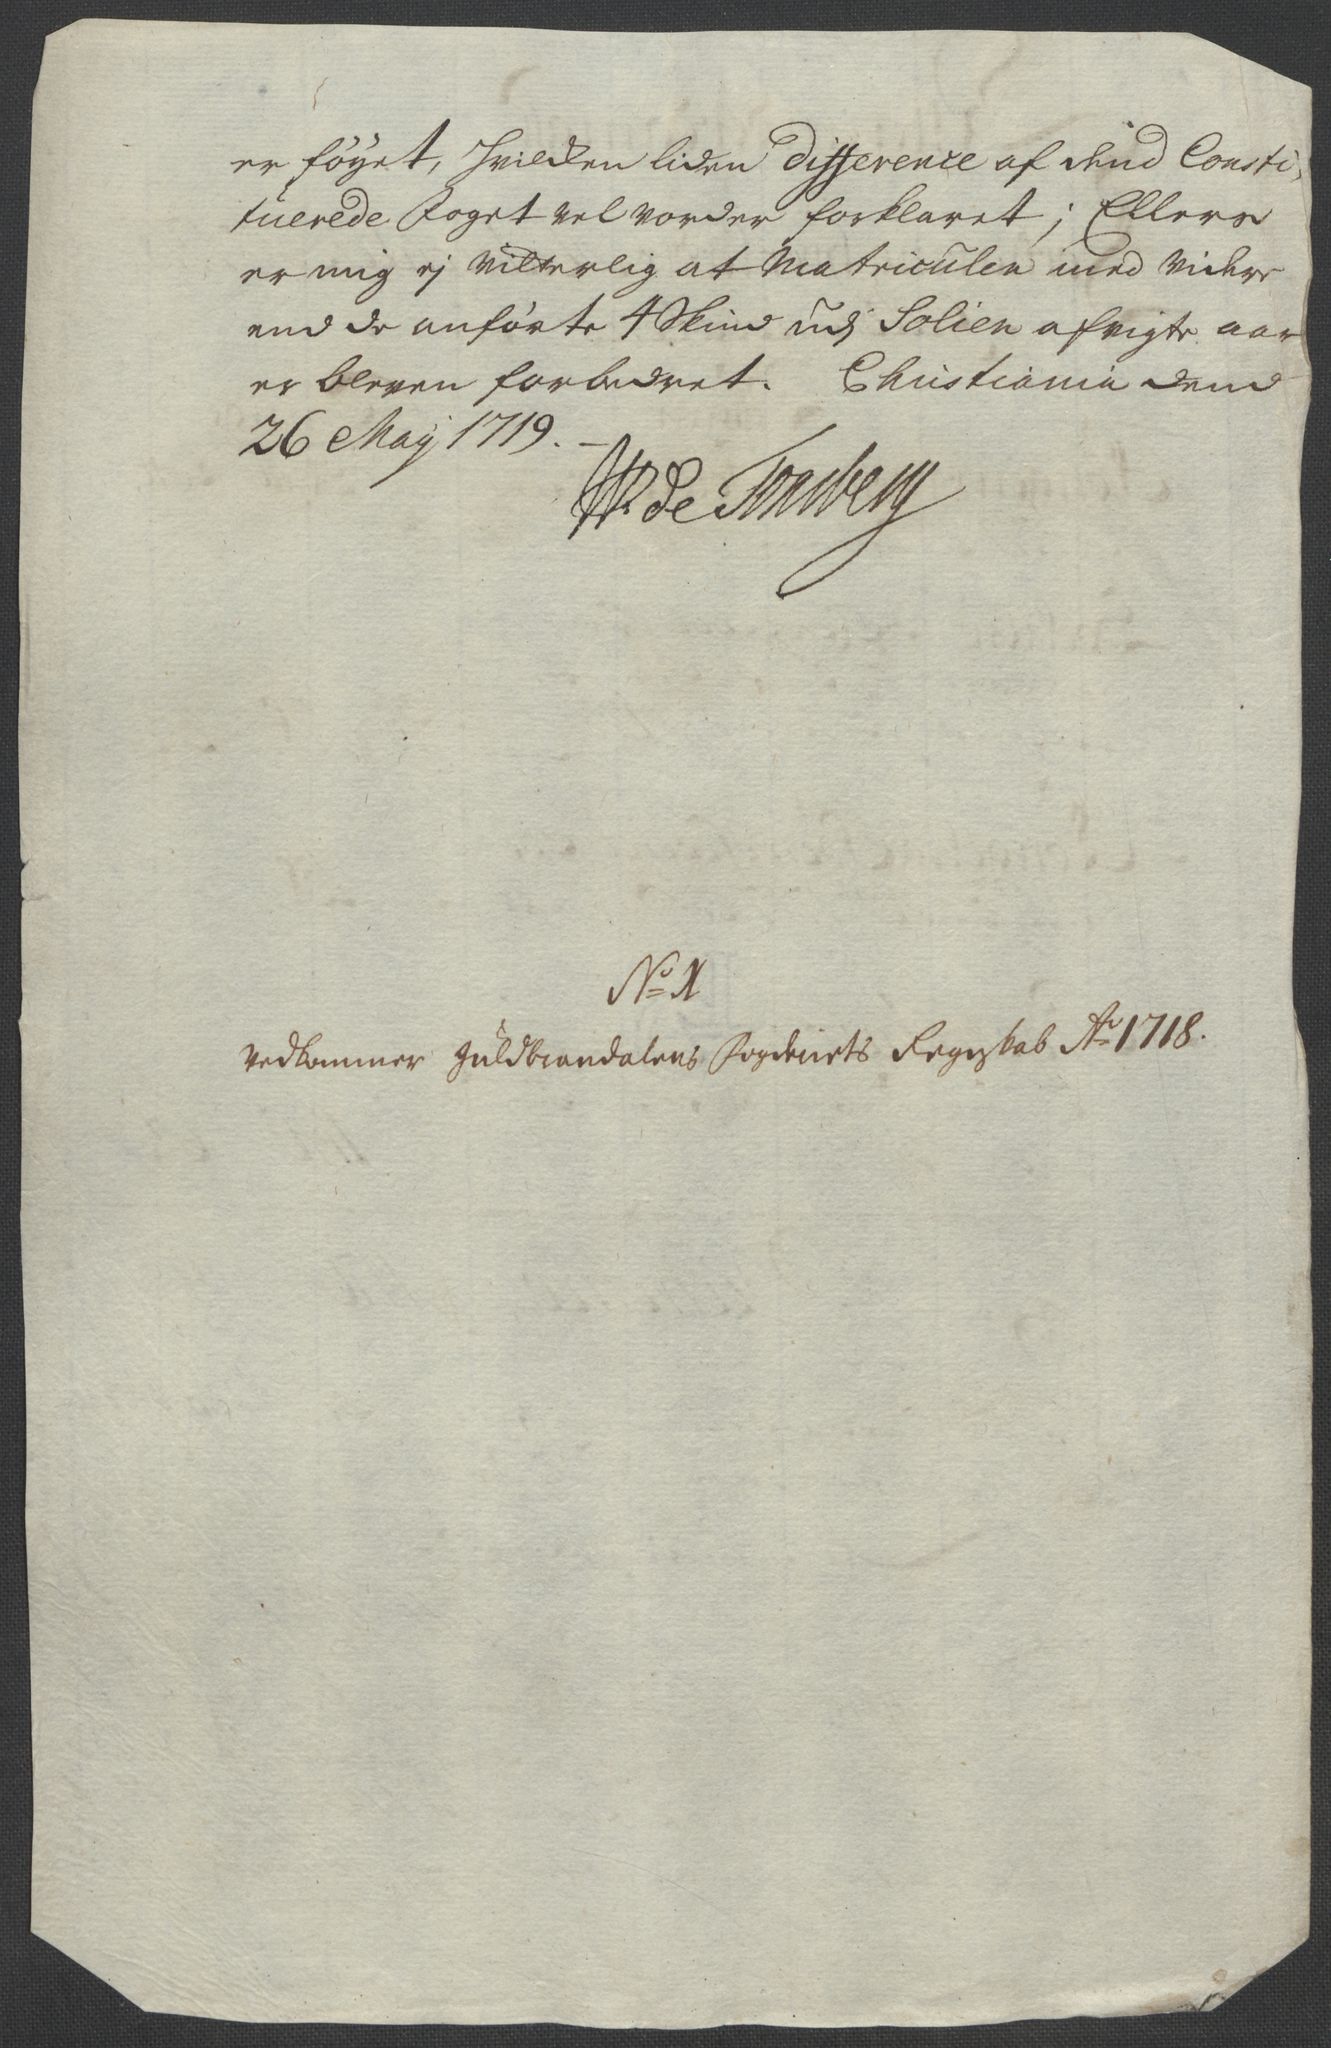 er föyet, Hvilcken liden Difference af dend Consti-
tuerede Foget vel vorder forklaret; Ellers
er mig ej vitterlig at Matriculen med videre
end de anförte 4 Skind udj Solien afvigte aar
er bleven forbedret. Christiania dend
26 Maij 1719.
W de Tonsberg
No X
Vedkommer Guldbrandalens Fogderiets Regnskab Ao 1718.